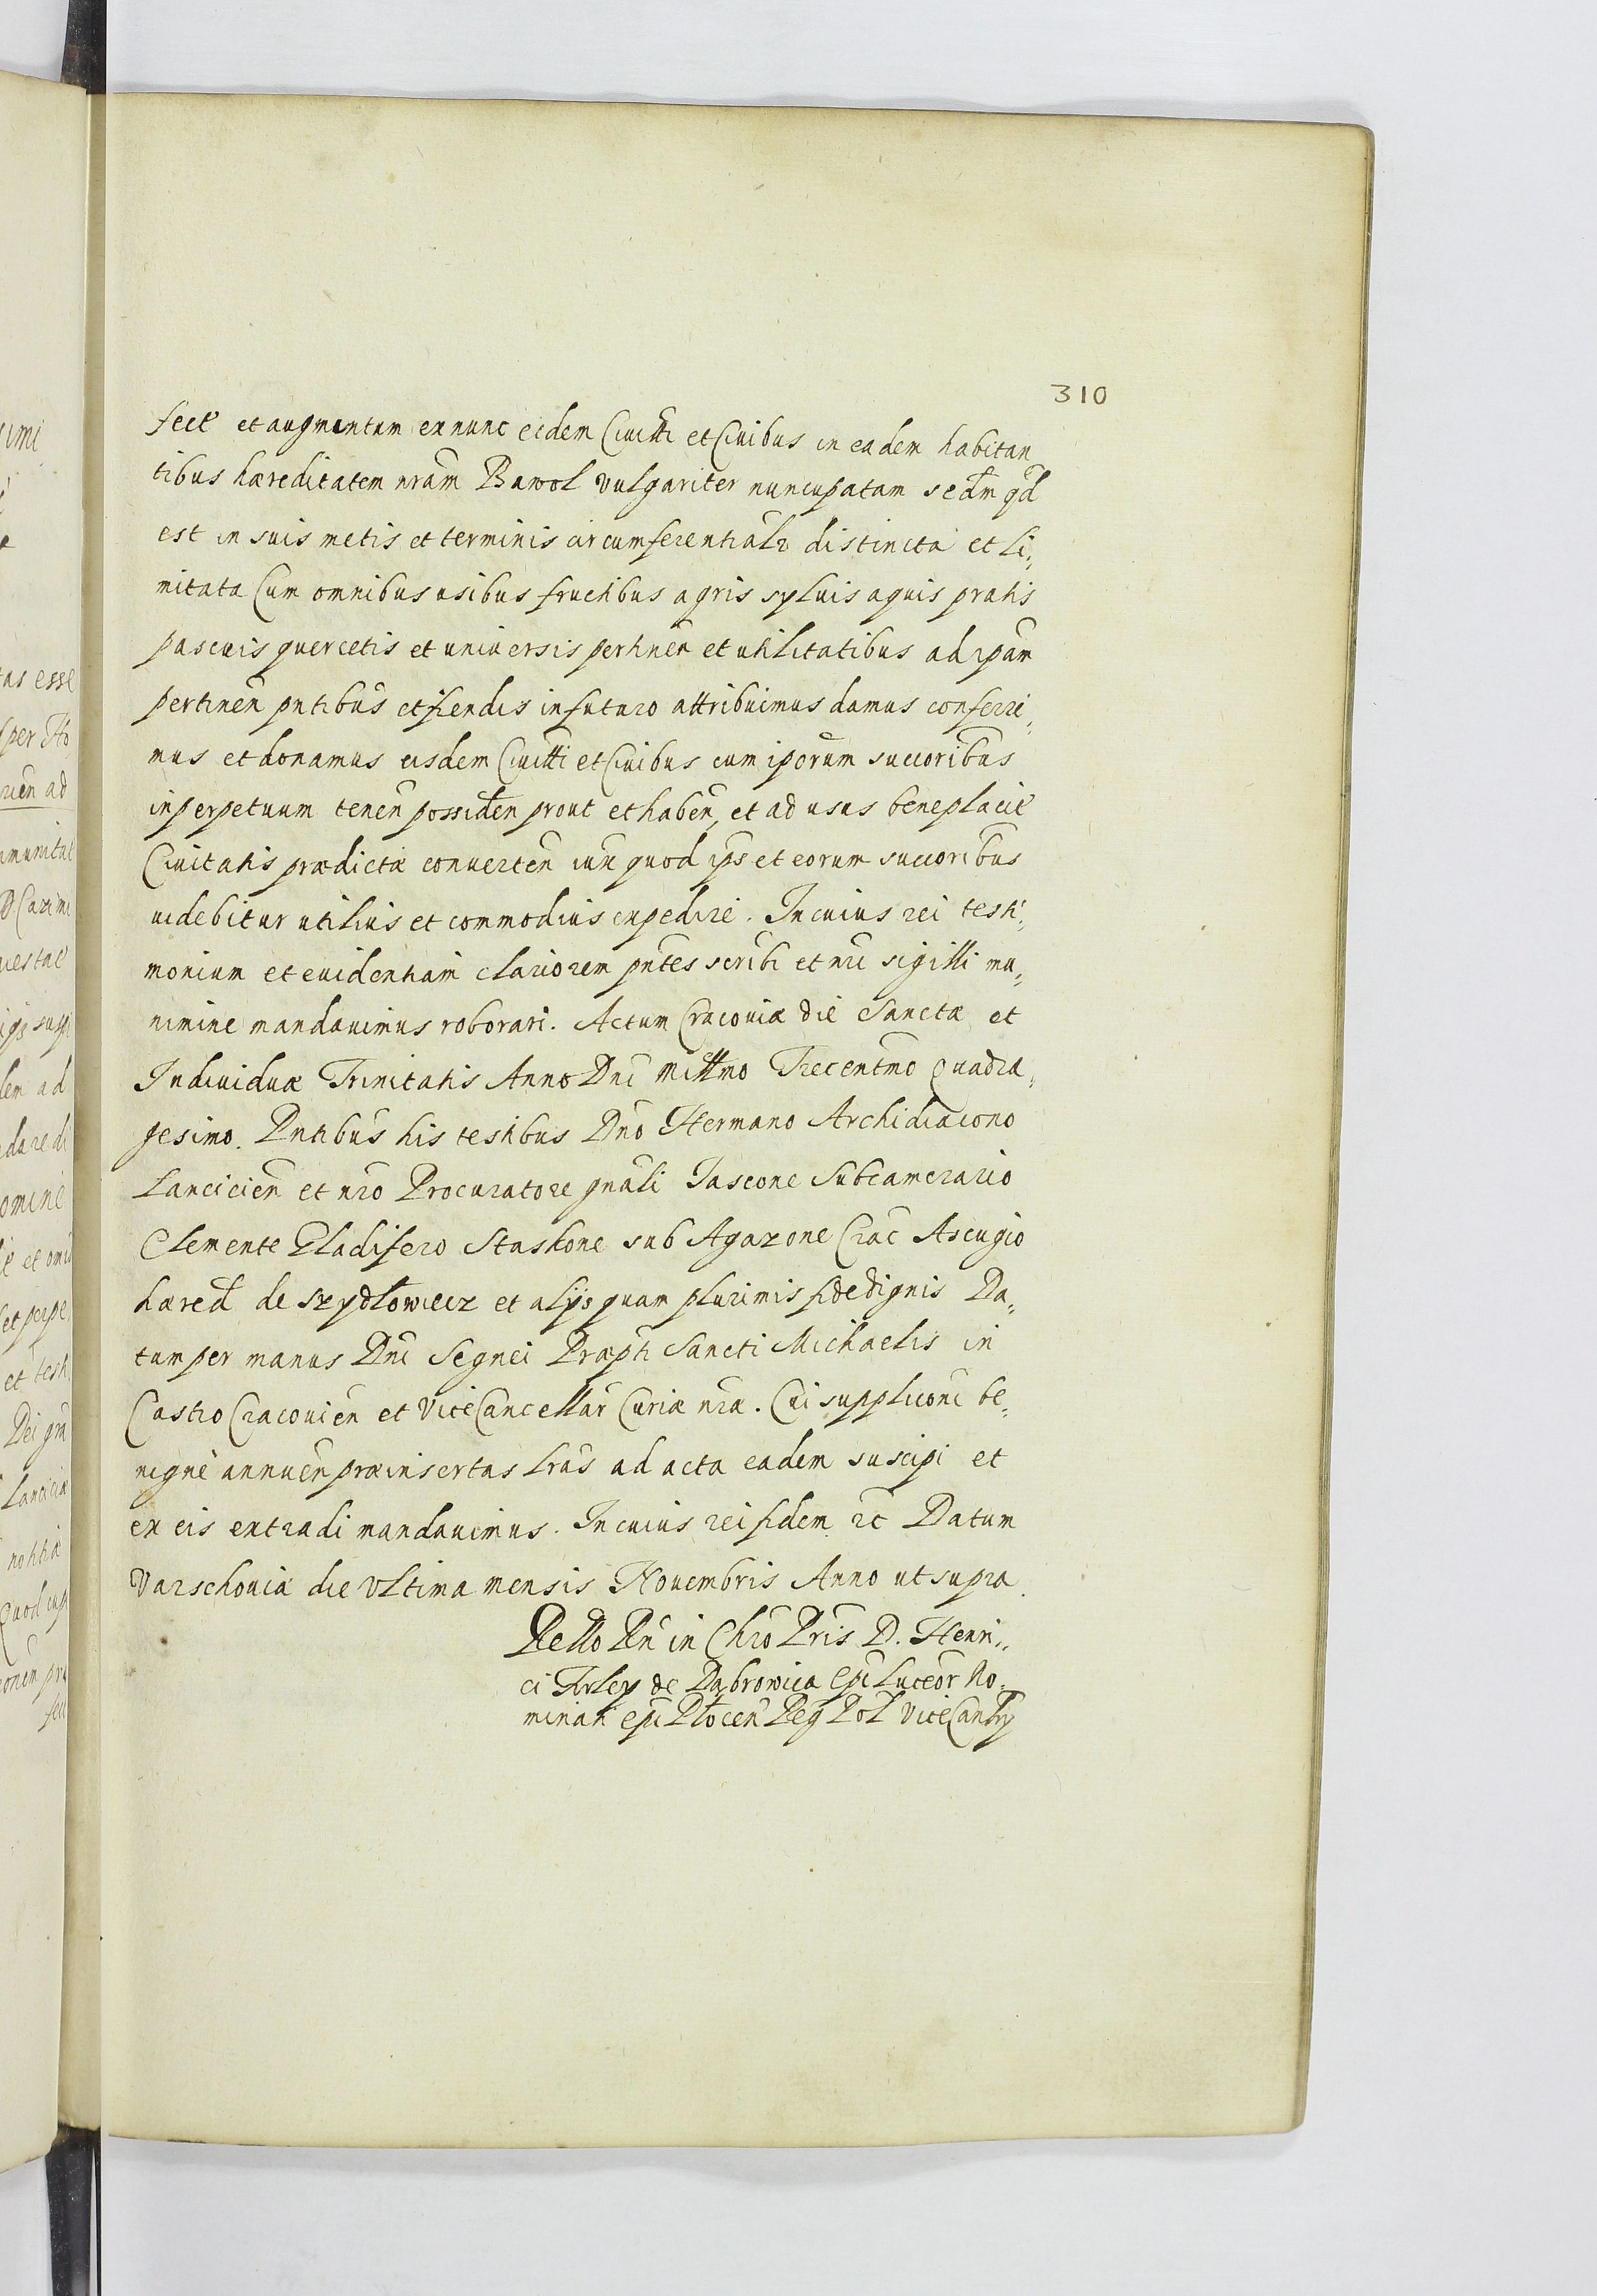 310
fect et augmentum ex nunc eidem Ciuitti et Ciuibus in eadem habitan
tibus hæreditatem nram Bawol vulgariter nuncupatam sedm qd
est in suis metis et terminis circumferentialr distincta et li„
mitata Cum omnibus usibus fructibus agris syluis aquis pratis
pascuis quercetis et universis pertinen et utilitatibus ad ipam
pertinen pntibus et fiendis in futuro attribuimus damus conferi„
mus et donamus eisdem Ciuitti et Ciuibus cum iporum succoribus
in perpetuum tenen possiden prout et haben, et ad usus beneplacit
Ciuitatis prædictæ conuerten iuxe quod ips et eorum succoribus
uidebitur utilius et commodius expediri. In cuius rei testi„
monium et euidentiam clariorem pntes scribi et nri sigilli mu„
nimine mandauimus roborari. Actum Cracouiæ die Sanctæ et
Indiuiduæ Trinitatis Anno Dni Millmo Trecentmo Quadra„
gesimo. Pntibus his testibus Dno Hermano Archidiacono
Lancicien et nro Procuratore gnali Jascone Subcamerario
Clemente Gladifero Staskone sub Agazone Crac Ascugio
hæred de Szydłowiecz et alijs quam plurimis fidedignis Da„
tum per manus Dni Segnei Præpti Sancti Michaelis in
Castro Cracouien et ViceCancellar Curiæ nræ. Cui suppliconi be„
nignè annuen præinsertas lras ad acta eadem suscipi et
ex eis extradi mandauimus. In cuius rei fidem etc Datum
Varschouiæ die ultima mensis Nouembris Anno ut supra.
Rello Rn in Chro Pris D. Henri„
ci Firley de Dąbrowica Epi Luceor No„
minati epi Płocen Reg Pol ViceCanlry